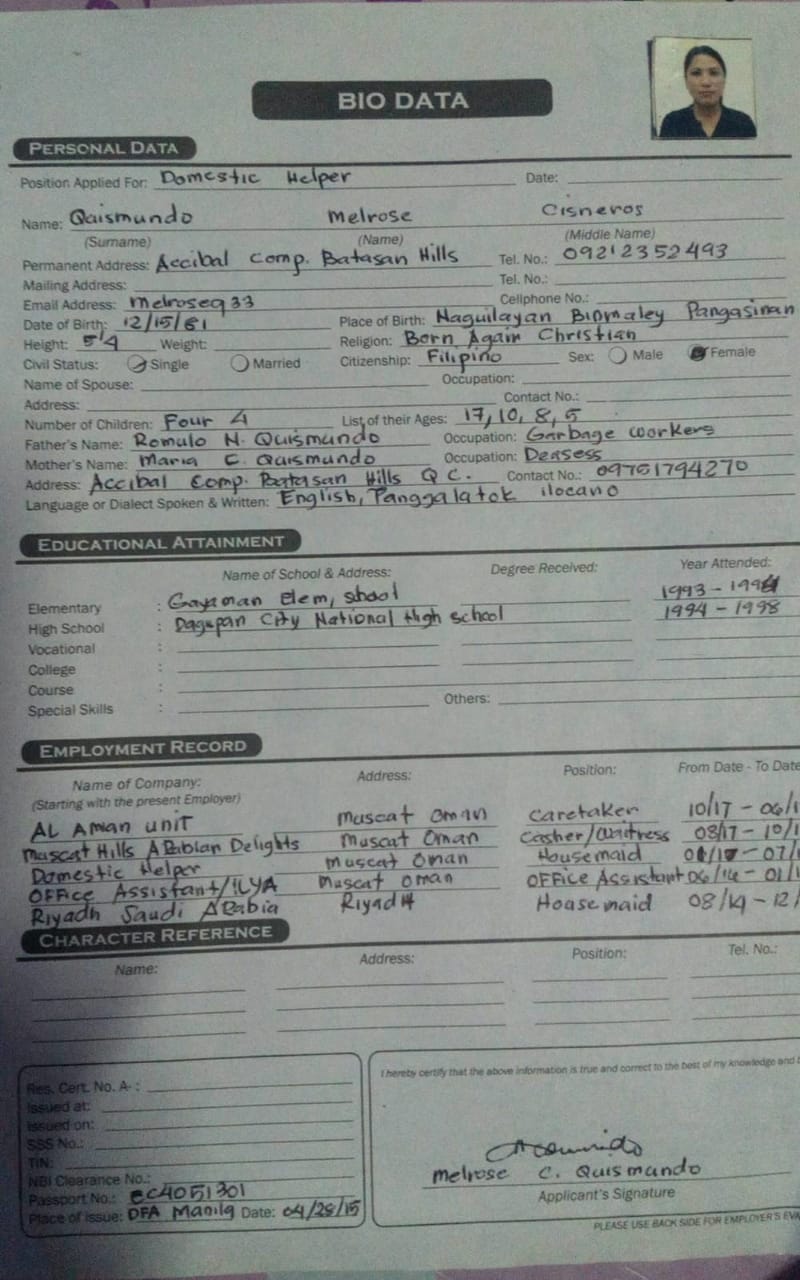 BIO DATA
PERSONAL DATA
Position Applied For: Domestic Helper Date:
Name: Quismundo Melrose Cisneros
(Surname) (Name) (Middle Name)
Permanent Address: Accibal Comp. Batasan Hills Tel. No.: 09212352493
Mailing Address: Tel. No.:
Email Address: melroseq33 Cellphone No.:
Date of Birth: 12/15/81 Place of Birth: Naguilayan Binmaley Pangasinan
Height: 5'4 Weight: Religion: Born Again Christian
Civil Status: Single Married Citizenship: Filipino Sex: Male Female
Name of Spouse: Occupation:
Address: Contact No.:
Number of Children: Four 4 List of their Ages: 17, 10, 8, 5
Father's Name: Romulo N. Quismundo Occupation: Garbage workers
Mother's Name: Maria C. Quismundo Occupation: Deasess
Address: Accibal Comp. Batasan Hills Q C. Contact No.: 09751794270
Language or Dialect Spoken & Written: English, Panggalatok ilocano
EDUCATIONAL ATTAINMENT
Name of School & Address: Degree Received: Year Attended:
Elementary : Gayaman Elem, shool 1993 - 1994
High School : Dagupan City National High school 1994 - 1998
Vocational :
College :
Course :
Special Skills : Others:
EMPLOYMENT RECORD
Name of Company: Address: Position: From Date - To Date
(Starting with the present Employer)
AL Aman unit Muscat Oman Caretaker 10/17 - 06/1
Muscat Hills ARabian Delights Muscat Oman Casher/Waitress 08/17 - 10/1
Domestic Helper Muscat Oman Housemaid - 07/1
OFFice Assistant/ILYA Muscat Oman OFFice Assistant 06/14 - 01/1
Riyadh Saudi ARabia Riyadh Housemaid - 12/
CHARACTER REFERENCE
Name: Address: Position: Tel. No.:
Res. Cert. No. A- :
Issued at:
Issued on:
SSS No.:
TIN:
NBI Clearance No.:
Passport No.: EC4051301
Place of issue: DFA Manila Date: 04/28/15
I hereby certify that the above information is true and correct to the best of my knowledge and
Melrose C. Quismundo
Applicant's Signature
PLEASE USE BACK SIDE FOR EMPLOYER'S EVA